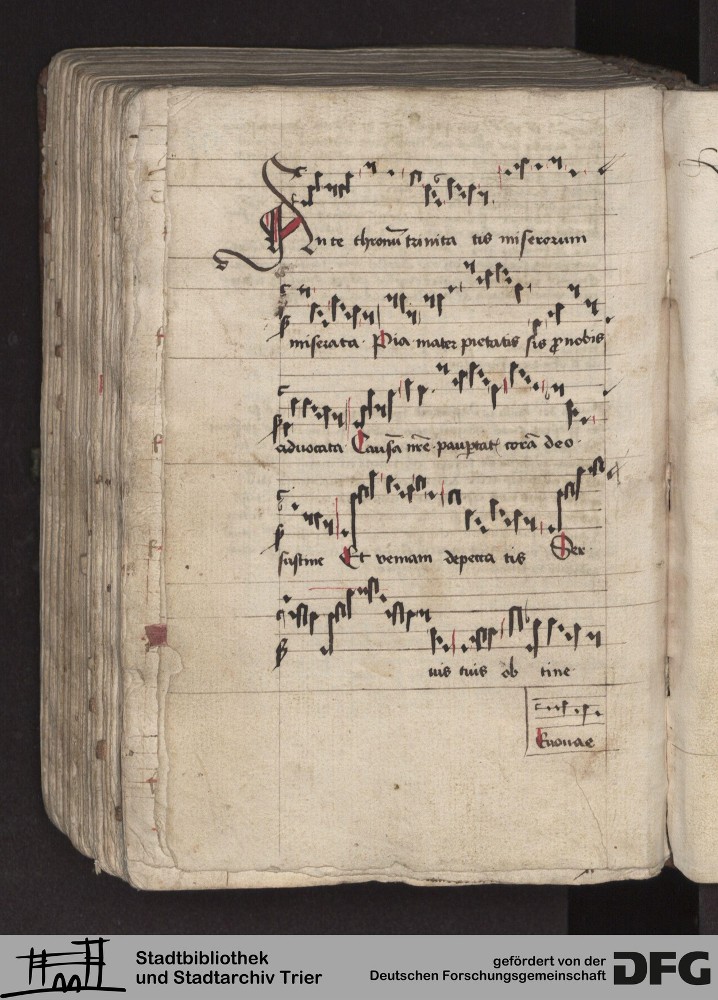 Ante thronū trinita tis miserorum
miserata Pia mater pietatis sis ꝓ nobis
advocata Causā nr̄e paup̱tat̄ corā deo
sustine Et veniam de pecca tis Ser
uis tuis ob tine
Euouae
Stadtbibliothek
und Stadtarchiv Trier
gefördert von der
Deutschen Forschungsgemeinschaft
DFG